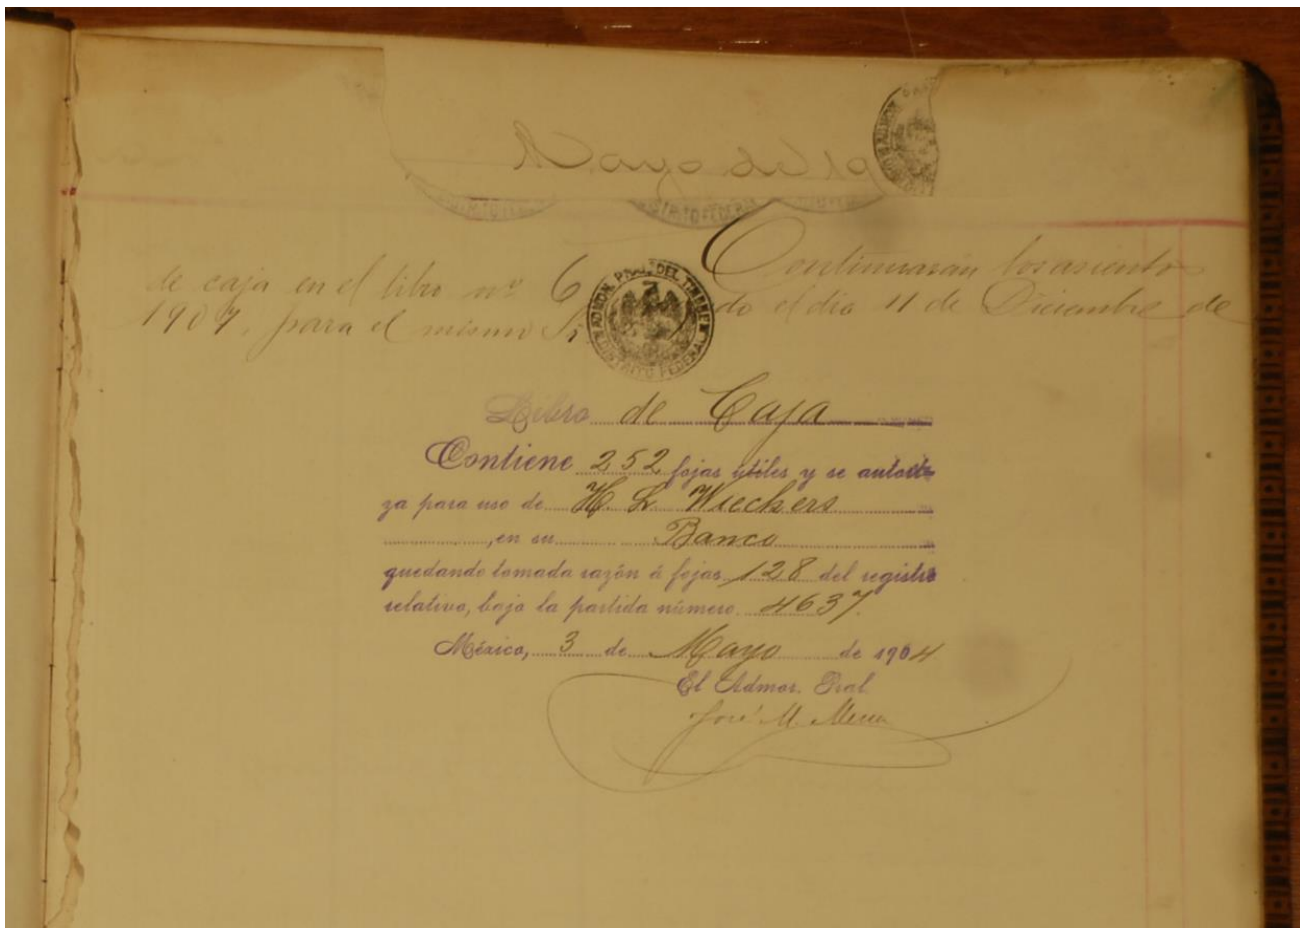 Mayo de 19
DISTRITO FEDERAL
Continuarán los asientos
de caja en el libro nº 6 do el dia 11 de Diciembre de
1907, para el mismo
ADMON. PRAL. DEL TIMBRE
DISTRITO FEDERAL
Libro de Caja
Contiene 252 fojas útiles y se autori-
za para uso de H. L. Wiechers
, en su Banco
quedando tomada razón á fojas 128 del registro
relativo, bajo la partida número 4637.
México, 3 de Mayo de 1904
El Admor. Gral.
José M. Mena